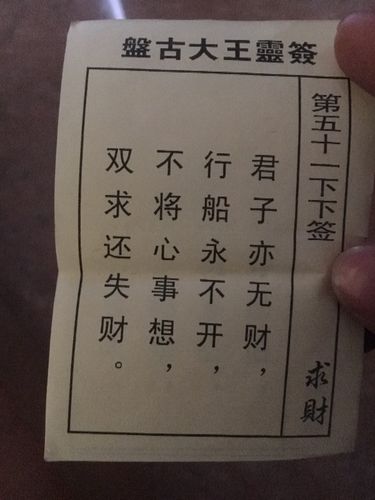 盤古大王靈簽
第五十一下下签
求财
君子亦无财，
行船永不开，
不将心事想，
双求还失财。